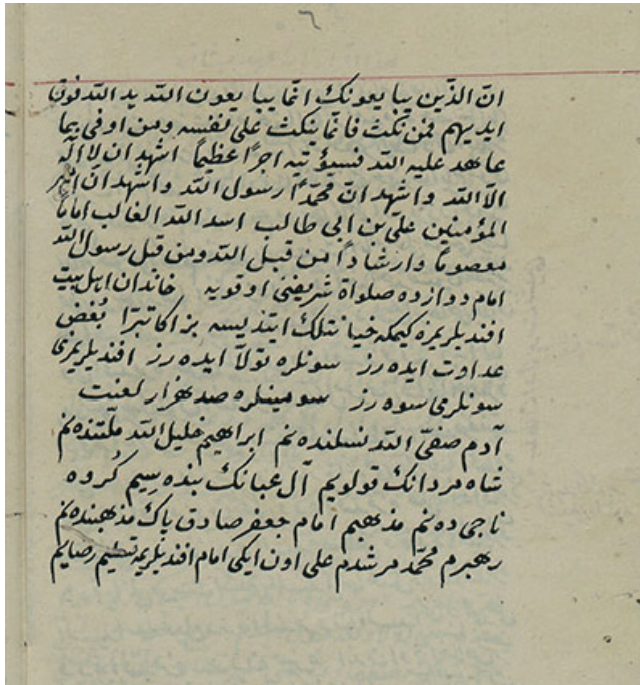 ٦
انّ الذّین یبایعونک انّما یبایعون اللّه ید اللّه فوق
ایدیهم فمن نکث فانّما ینکث علی نفسه ومن اوفی بما
عاهد علیه اللّه فسیؤتیه اجرًا عظیمًا اشهد ان لا اله
الّا اللّه واشهد انّ محمّدًا رسول اللّه واشهد انّ امیر
المؤمنین علیّ بن ابی طالب اسد اللّه الغالب امامًا
معصومًا وارشادًا من قبل اللّه ومن قبل رسول اللّه
امام دوازده صلواة شریفنی اوقویه خاندان اهل بیت
افندیلریمزه کیمکه خیانتلک ایتدیسه بز اکا تبرّا بُغض
عداوت ایده رز سونلره تولّا ایده رز افندیلریمزی
سونلرمی سوه رز سومینلره صد هزار لعنت
آدم صفیّ اللّه نسلنده نم ابراهیم خلیل اللّه ملّتنده نم
شاه مردانک قولویم آل عبانک بنده سِیم کُروه
ناجی ده نم مذهبم امام جعفر صادق پاک مذهبنده نم
رهبرم محمّد مرشدم علی اون ایکی امام افندیلریمه تسلیم رضایم